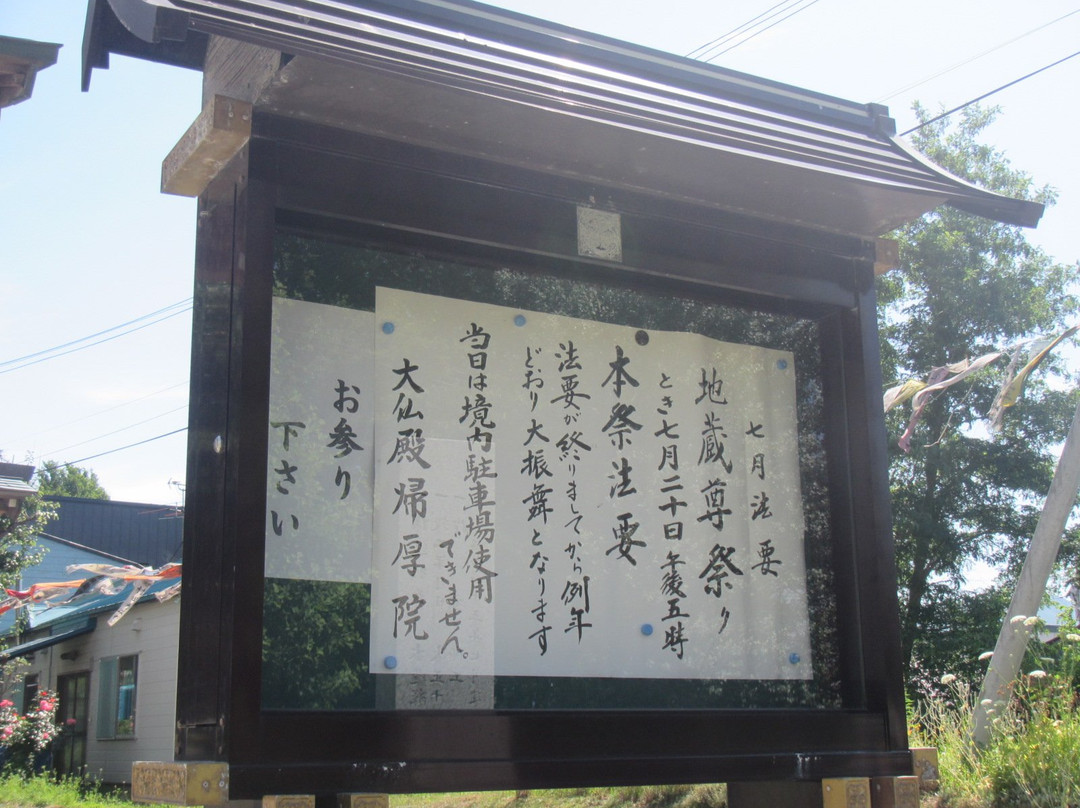 七月法要
地蔵尊祭り
とき七月二十日午後五時
本祭法要
法要が終りましてから例年
どおり大振舞となります
当日は境内駐車場使用
できません。
大仏殿帰厚院
お参り
下さい